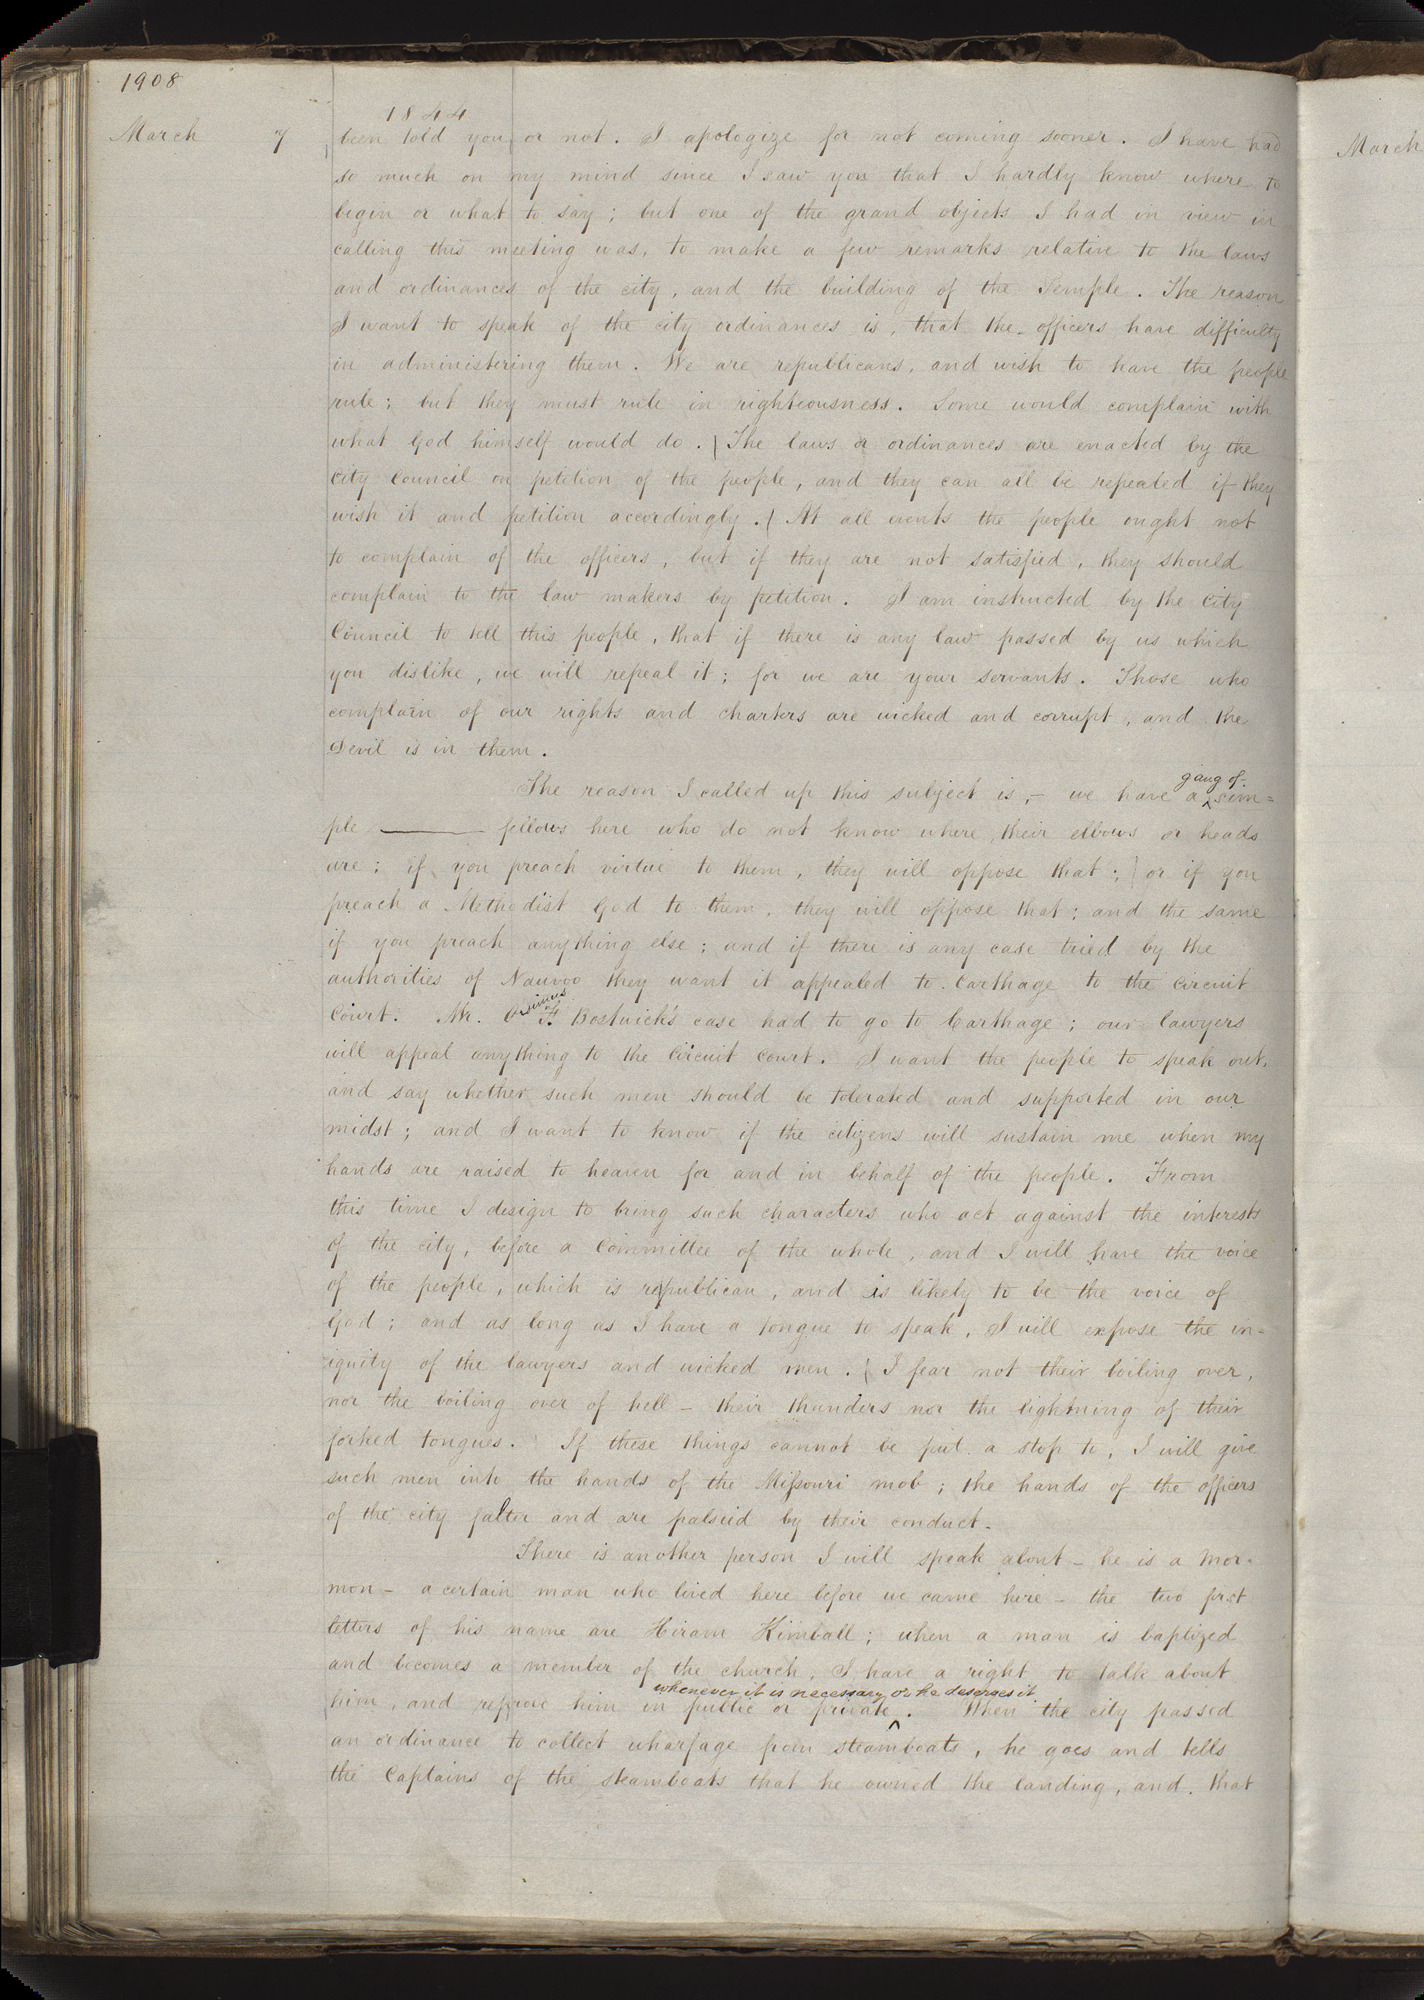 1908
1844
March 7 been told you or not. I apologize for not coming sooner. I have had
March
so much on my mind since I saw you that I hardly know where to
begin or what to say; but one of the grand objects I had in view in
calling this meeting was, to make a few remarks relative to the laws
and ordinances of the city, and the building of the Temple. The reason
I want to speak of the city ordinances is, that the officers have difficulty
in administering them. We are republicans, and wish to have the people
rule; but they must rule in righteousness. Some would complain with
what God himself would do. The laws or ordinances are enacted by the
city council on petition of the people, and they can all be repealed if they
wish it and petition accordingly. At all events the people ought not
to complain of the officers, but if they are not satisfied, they should
complain to the law makers by petition. I am instructed by the city
Council to tell this people, that if there is any law passed by us which
you dislike, we will repeal it; for we are your servants. Those who
complain of our rights and charters are wicked and corrupt, and the
Devil is in them.
gang of
The reason I called up this subject is, – we have a ^ sim=
ple ——— fellows here who do not know where their elbows or heads
are; if you preach virtue to them, they will oppose that; or if you
preach a Methodist God to them, they will oppose that; and the same
if you preach anything else; and if there is any case tried by the
authorities of Nauvoo they want it appealed to Carthage to the circuit
court. Mr. Orsimus F. Bostwick's case had to go to Carthage; our lawyers
will appeal anything to the circuit court. I want the people to speak out,
and say whether such men should be tolerated and supported in our
midst; and I want to know if the citizens will sustain me when my
hands are raised to heaven for and in behalf of the people. From
this time I design to bring such characters who act against the interests
of the city, before a committee of the whole, and I will have the voice
of the people, which is republican, and is likely to be the voice of
God; and as long as I have a tongue to speak, I will expose the in=
iquity of the lawyers and wicked men. I fear not their boiling over,
nor the boiling over of hell – their thunders nor the lightning of their
forked tongues. If these things cannot be put a stop to, I will give
such men into the hands of the Missouri mob; the hands of the officers
of the city falter and are palsied by their conduct.
There is another person I will speak about – he is a Mor-
mon – a certain man who lived here before we came here – the two first
letters of his name are Hiram Kimball; when a man is baptized
and becomes a member of the church, I have a right to talk about
whenever it is necessary or he deserves it
him, and reprove him in public or private ^. When the city passed
an ordinance to collect wharfage from steamboats, he goes and tells
the Captains of the steamboats that he owned the landing, and that